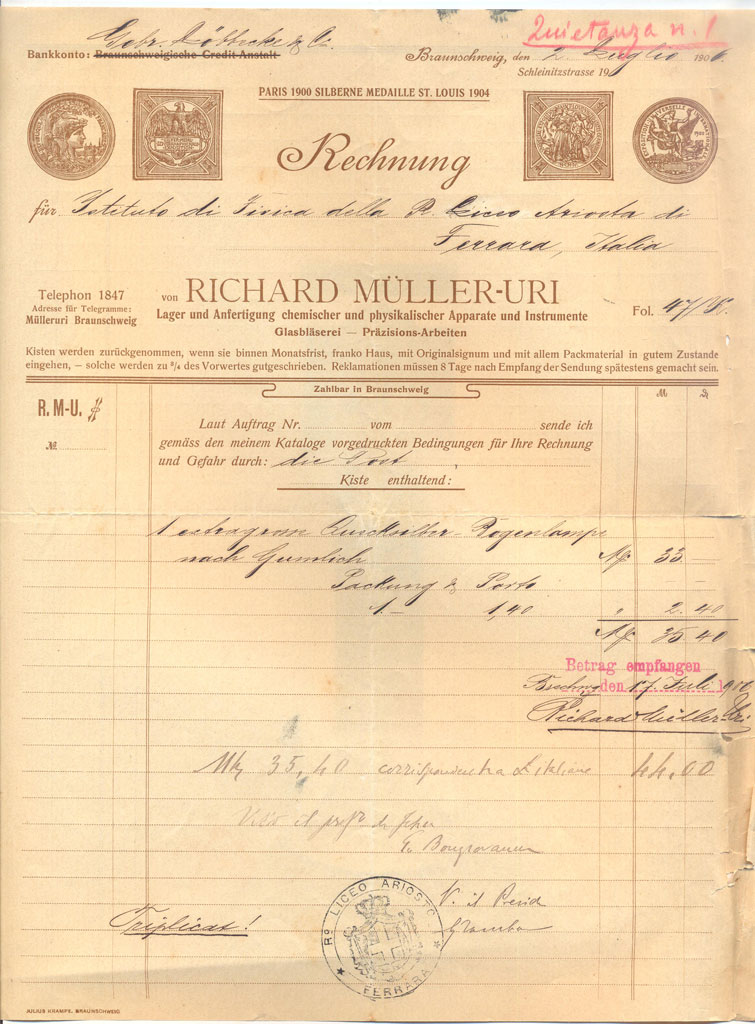 Quietanza n. 1
Gebr. Löbbecke & Co.
Bankkonto: Braunschweigische Credit-Anstalt
Braunschweig, den 2 Luglio 1906
Schleinitzstrasse 19
PARIS 1900 SILBERNE MEDAILLE ST. LOUIS 1904
Rechnung
für Istituto di Fisica della R. Liceo Ariosto di
Ferrara, Italia
Telephon 1847
Adresse für Telegramme:
Mülleruri Braunschweig
von RICHARD MÜLLER-URI
Lager und Anfertigung chemischer und physikalischer Apparate und Instrumente
Glasbläserei — Präzisions-Arbeiten
Fol. 47
Kisten werden zurückgenommen, wenn sie binnen Monatsfrist, franko Haus, mit Originalsignum und mit allem Packmaterial in gutem Zustande
eingehen, — solche werden zu ³/₄ des Vorwertes gutgeschrieben. Reklamationen müssen 8 Tage nach Empfang der Sendung spätestens gemacht sein.
Zahlbar in Braunschweig
R. M-U. #
№
Laut Auftrag Nr. vom sende ich
gemäss den meinem Kataloge vorgedruckten Bedingungen für Ihre Rechnung
und Gefahr durch: die Post
Kiste enthaltend:
1 extragross Quecksilber-Bogenlampe
nach Gumlich M 33.—
Packung & Porto —
1.— 1,40 " 2.40
M 35.40
Betrag empfangen
Bschwg den 17. Juli 1906
Richard Müller-Uri
Mk 35,40 corrispondenti a L italiane 44.00
Visto il prof. di
G. Bongiovanni
V. il Preside
Triplicat!
Rº LICEO ARIOSTO
FERRARA
JULIUS KRAMPE, BRAUNSCHWEIG